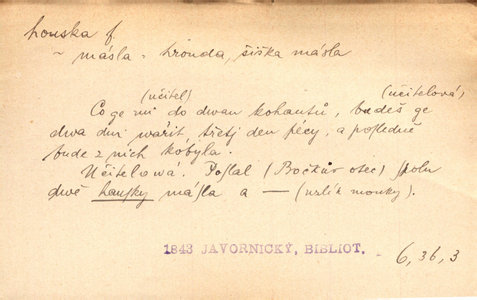 houska f.
~ másla - hrouda, šiška másla
(učitel) (učitelová)
Co ge mi do dwau kohautů, budeš ge
dwa dni wařit, třetj den pécy, a posledně
bude z nich kobyla.
Učitelowá. Poslal (Bočkův otec) spolu
dwě hausky másla a — (uzlík mouky).
1843 JAVORNICKÝ, BIBLIOT.
6, 36, 3